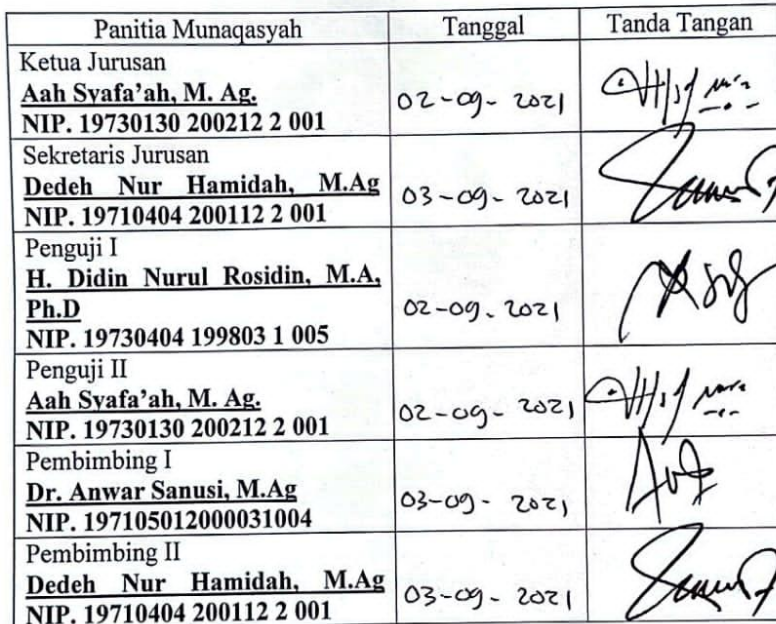 Panitia Munaqasyah Tanggal Tanda Tangan
Ketua Jurusan
Aah Syafa'ah, M. Ag.
NIP. 19730130 200212 2 001
02-09-2021
Sekretaris Jurusan
Dedeh Nur Hamidah, M.Ag
NIP. 19710404 200112 2 001
03-09-2021
Penguji I
H. Didin Nurul Rosidin, M.A,
Ph.D
NIP. 19730404 199803 1 005
02-09-2021
Penguji II
Aah Syafa'ah, M. Ag.
NIP. 19730130 200212 2 001
02-09-2021
Pembimbing I
Dr. Anwar Sanusi, M.Ag
NIP. 197105012000031004
03-09-2021
Pembimbing II
Dedeh Nur Hamidah, M.Ag
NIP. 19710404 200112 2 001
03-09-2021